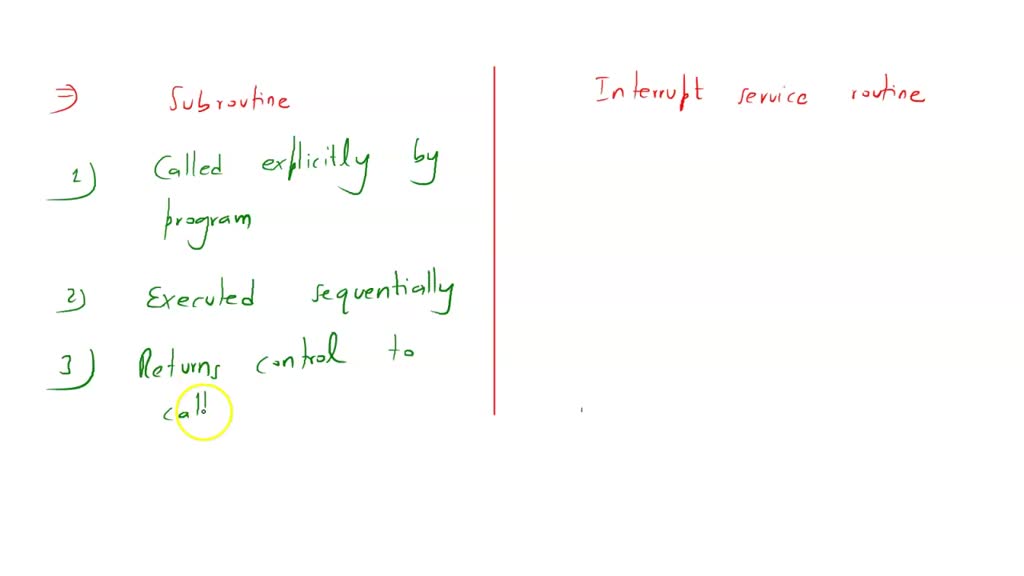 ⇒ Subroutine
Interrupt service routine
1) Called explicitly by
program
2) Executed sequentially
3) Returns control to
call